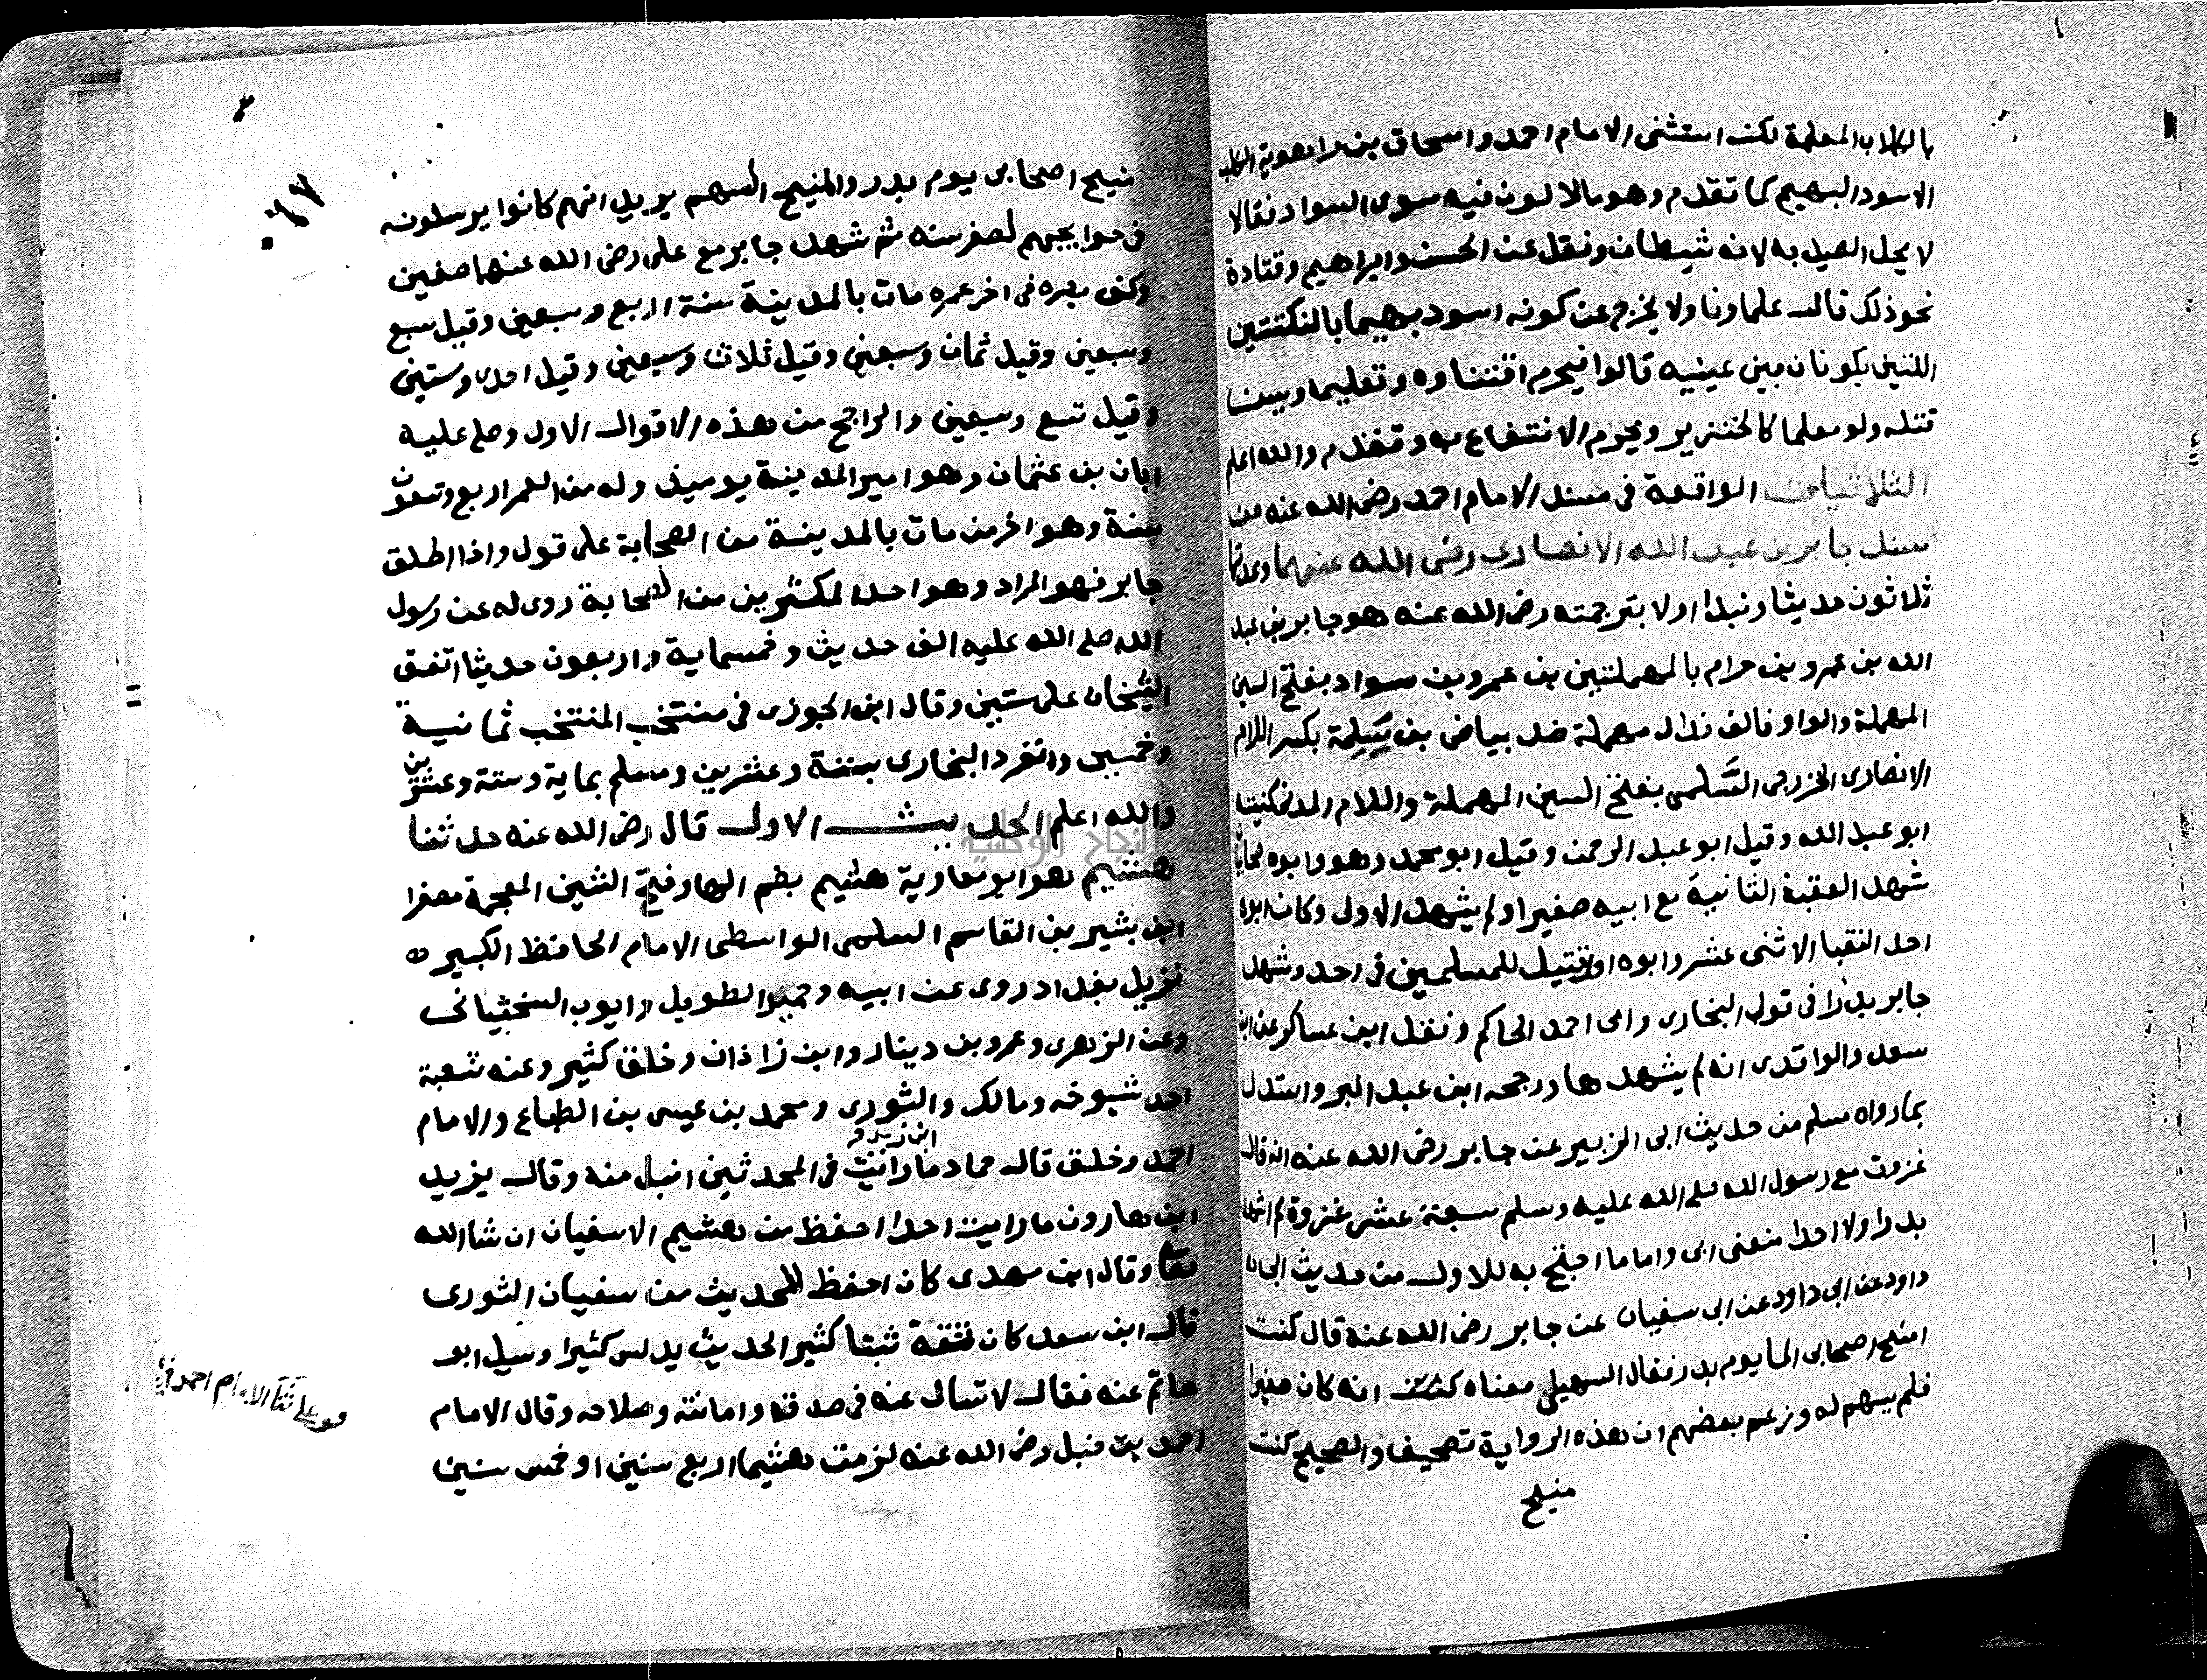 بالكلاب المعلمة لكن استثنى الامام احمد واسحاق بن راهوية الكلب
الاسود البهيم كما تقدم وهو مالا لون فيه سوى السواد فقالا
لا يحل الصيد به لانه شيطان ونقل عن الحسن وابراهيم وقتادة
نحو ذلك قال علماونا ولا يخرج عن كونه اسود بهيما بالنكتتين
اللتين يكونان بين عينيه قالوا فيحرم اقتناوه وتعليما ويسن
قتله ولو معلما كالخنزير ويحرم الانتفاع به وتقدم والله اعلم
الثلاثيات الواقعة في مسند الامام احمد رضى الله عنه من
مسند جابر بن عبد الله الانصارى رضى الله عنهما وعدتها
ثلاثون حديثا ونبدا اولا بترجمته رضى الله عنه هو جابر بن عبد
الله بن عمرو بن حرام بالمهملتين بن عمرو بن سواد بفتح السين
المهملة والواو فالف فدال مهملة ضد بياض بن سلمة بكسر اللام
الانصارى الخزرجى السلمى بفتح السين المهملة واللام المدنى كنيته
ابو عبد الله وقيل ابو عبد الرحمن وقيل ابو محمد وهو وابوه صحابيان
شهد العقبة الثانية مع ابيه صغيرا ولم يشهد الاولى وكان ابوه
احد النقبا الاثنى عشر وابوه اول قتيل للمسلمين في احد وشهد
جابر بدرا في قول البخارى وابى احمد الحاكم ونقل ابن عساكر عن ابن
سعد والواقدى انه لم يشهدها ورجحه ابن عبد البر واستدل
بما رواه مسلم من حديث ابى الزبير عن جابر رضى الله عنه انه قال
غزوت مع رسول الله صلى الله عليه وسلم سبعة عشر غزوة لم اشهد
بدرا ولا احدا منعنى ابى واما ما احتج به للاول من حديث ابى
داود عن ابى داود عن ابى سفيان عن جابر رضى الله عنه قال كنت
امنح اصحابى الما يوم بدر فقال السهيلى معناه كنت انه كان صغيرا
فلم يسهم له وزعم بعضهم ان هذه الرواية تصحيف والصحيح كنت
منيح
منيح اصحابى يوم بدر والمنيح السهم يريد انهم كانوا يرسلونه
في حوايجهم لصغر سنه ثم شهد جابر مع على رضى الله عنهما صفين
وكف بصره في اخر عمره مات بالمدينة سنة اربع وسبعين وقيل سبع
وسبعين وقيل ثمان وسبعين وقيل ثلاث وسبعين وقيل احدى وستين
وقيل تسع وسبعين والراجح من هذه الاقوال الاول وصلى عليه
ابان بن عثمان وهو امير المدينة يوميذ وله من العمر اربع وتسعون
سنة وهو اخر من مات بالمدينة من الصحابة على قول واذا اطلق
جابر فهو المراد وهو احد المكثرين من الصحابة روى له عن رسول
الله صلى الله عليه الف حديث وخمسماية واربعون حديثا اتفق
الشيخان على ستين وقال ابن الجوزى في منتخب المنتخب ثمانية
وخمسين وانفرد البخارى بستة وعشرين ومسلم بماية وستة وعشرين
والله اعلم الحديث الاول قال رضى الله عنه حدثنا
هشيم هو ابو معاوية هشيم بضم الها وفتح الشين المعجمة مصغرا
ابن بشير بن القاسم السلمى الواسطى الامام الحافظ الكبير
نزيل بغداد روى عن ابيه وحميد الطويل وايوب السختيانى
وعن الزهرى وعمرو بن دينار وابن زاذان وخلق كثير وعنه شعبة
احد شيوخه ومالك والثورى ومحمد بن عيسى بن الطباع والامام
ابن زيد
احمد وخلق قال حماد ما رايت في المحدثين انبل منه وقال يزيد
ابن هارون ما رايت احدا احفظ من هشيم الا سفيان ان شا الله
تعا وقال ابن مهدى كان احفظ للحديث من سفيان الثورى
قال ابن سعد كان ثقة ثبتا كثير الحديث يدلس كثيرا وسيل ابو
حاتم عنه فقال لا تسال عنه في صدقه وامانته وصلاحه وقال الامام
احمد بن حنبل رضى الله عنه لزمت هشيما اربع سنين او خمس سنين
الامام احمد
جامعة النجاح الوطنية